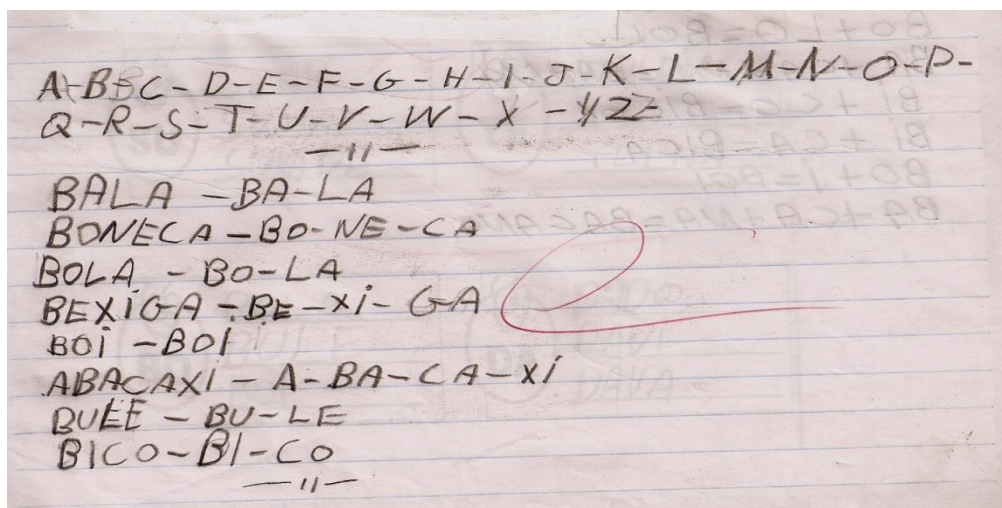 A-BBC-D-E-F-G-H-I-J-K-L-M-N-O-P-
Q-R-S-T-U-V-W-X-YZ-
—11—
BALA -BA-LA
BONECA -BO-NE-CA
BOLA - BO-LA
BEXIGA -BE-XI-GA
BOI -BOI
ABACAXI - A-BA-CA-XI
BULE - BU-LE
BICO-BI-CO
—11—